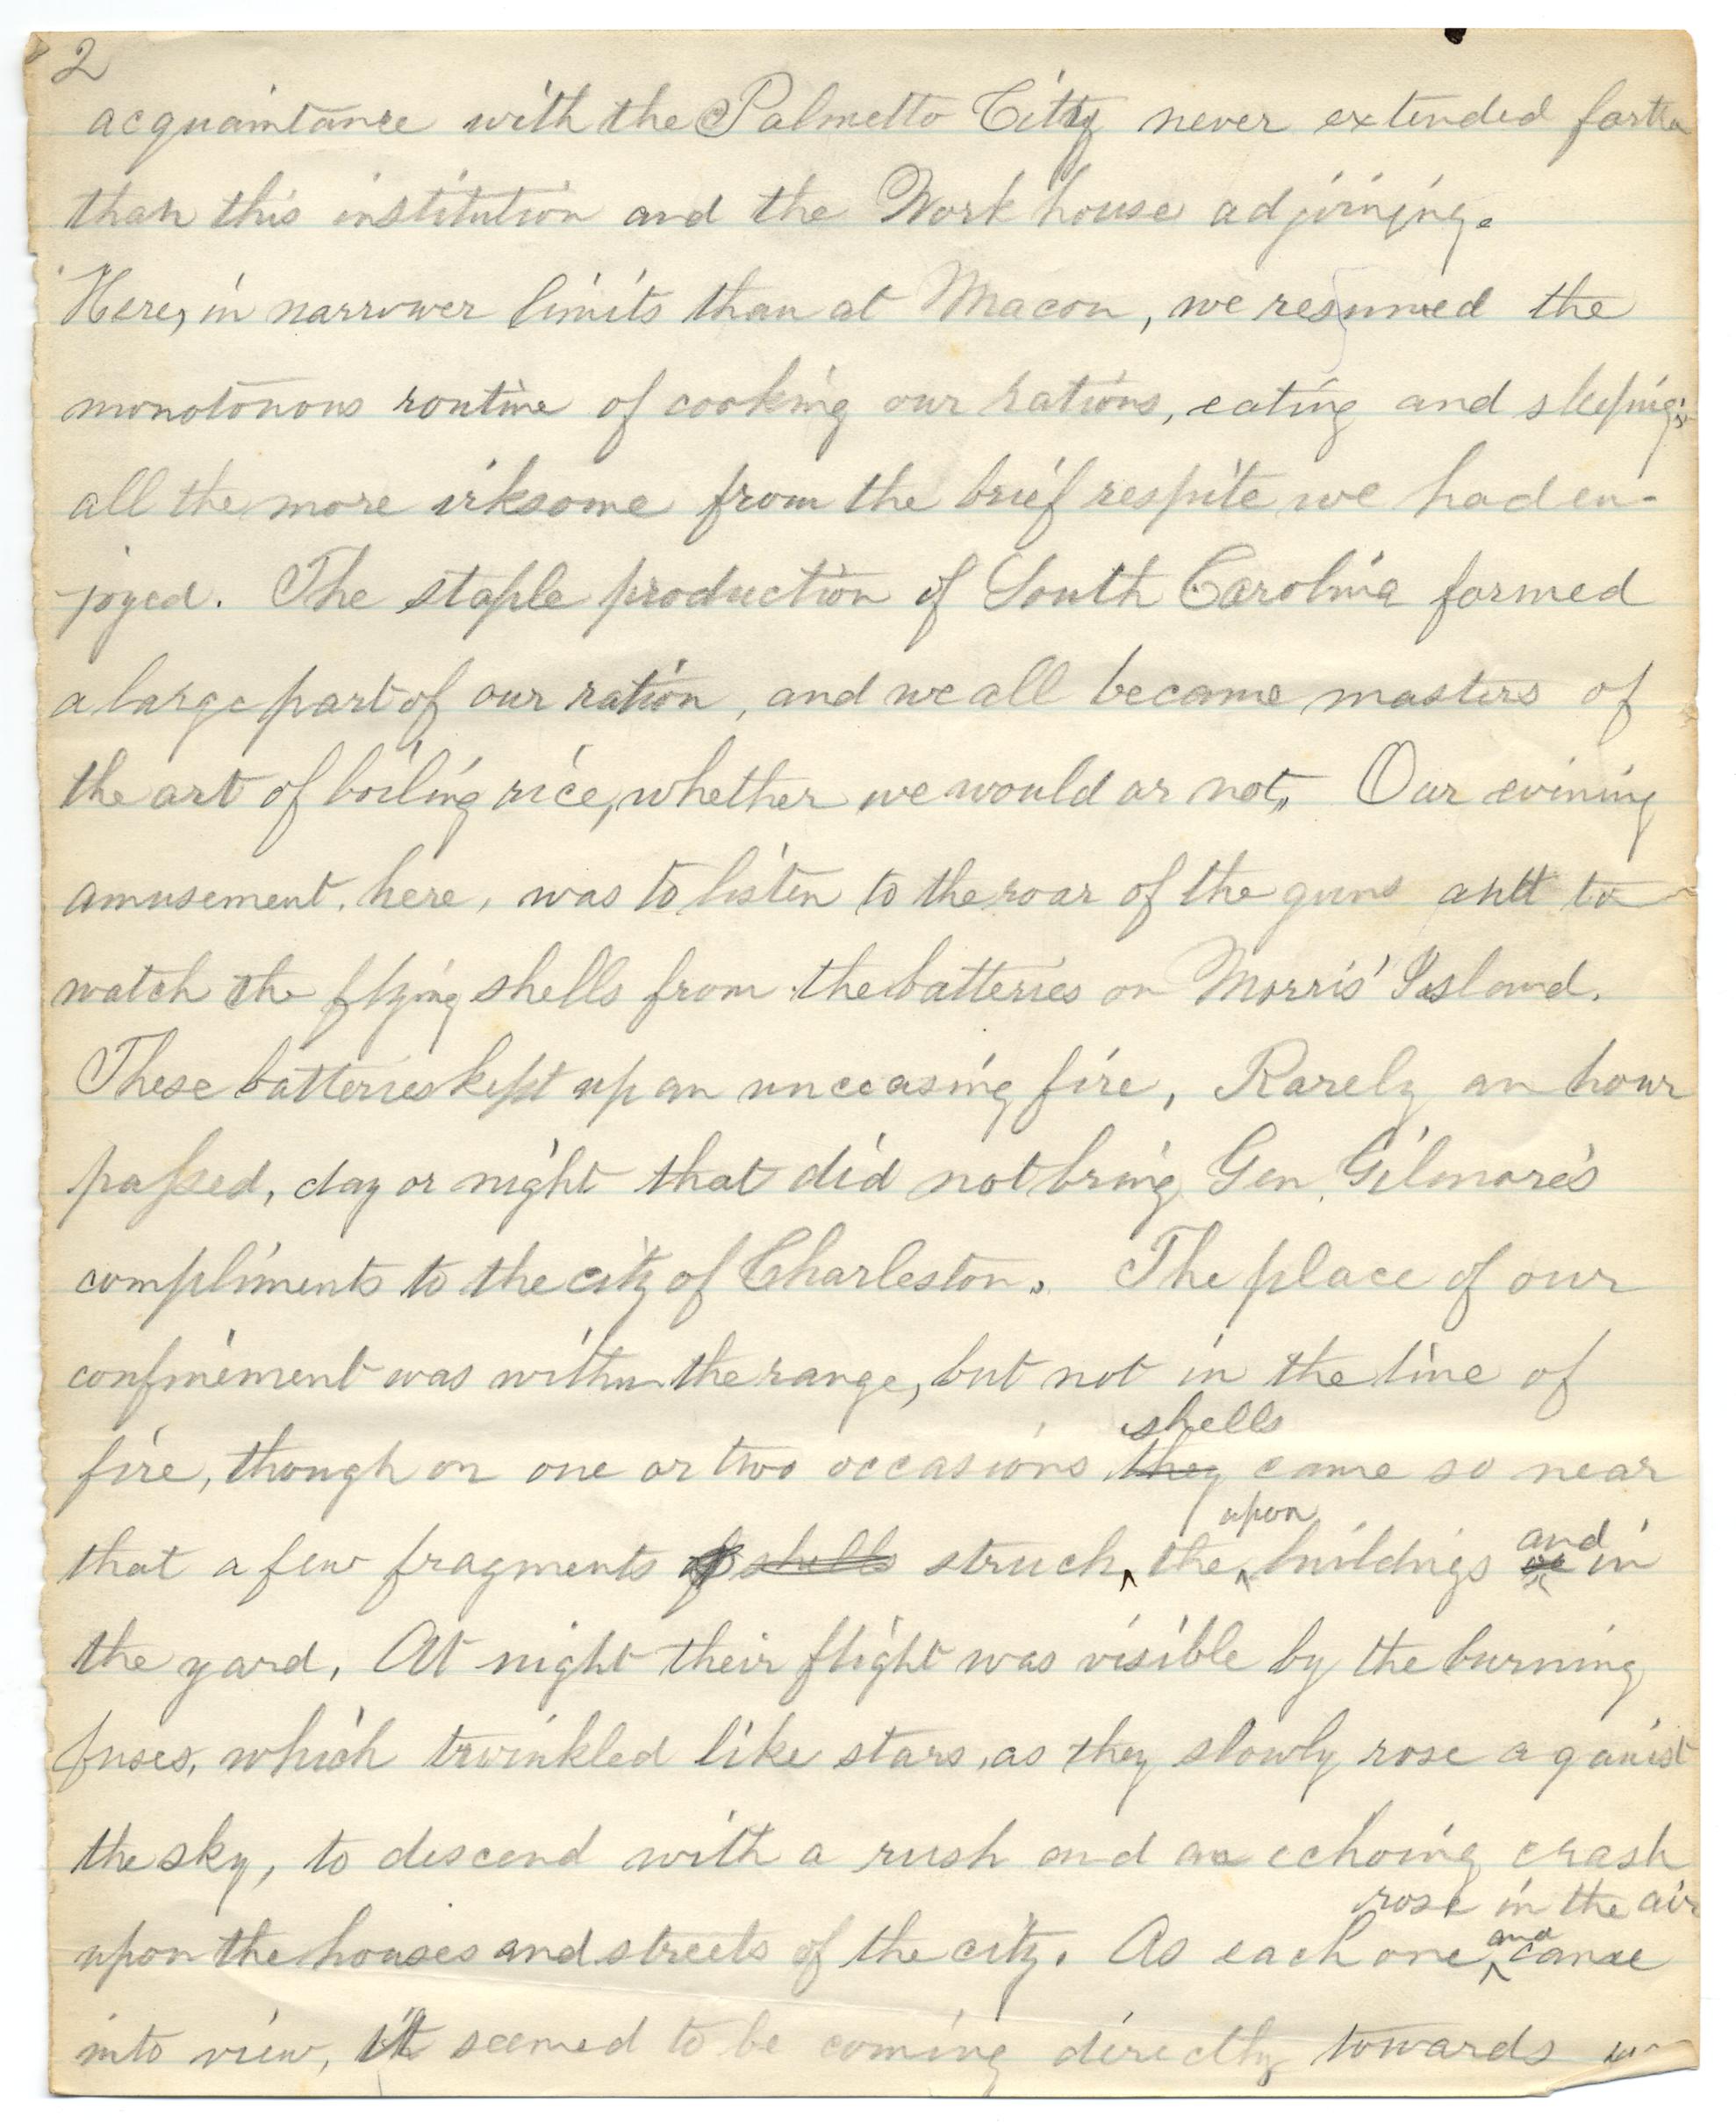 2
acquaintance with the Palmetto City never extended farther
than this institution and the Work house adjoining.
Here, in narrower limits than at Macon, we resumed the
monotonous routine of cooking our rations, eating and sleeping;
all the more irksome from the brief respite we had en-
joyed. The staple production of South Carolina formed
a large part of our ration, and we all became masters of
the art of boiling rice, whether we would or not. Our evening
amusement, here, was to listen to the roar of the guns and to
watch the flying shells from the batteries on Morris' Island.
These batteries kept up an unceasing fire, Rarely an hour
passed, day or night that did not bring Gen. Gilmore's
compliments to the city of Charleston. The place of our
confinement was within the range, but not in the line of
shells
fire, though on one or two occasions they came so near
upon and
that a few fragments of shells struck, the buildings or in
the yard. At night their flight was visible by the burning
fuses, which twinkled like stars, as they slowly rose against
the sky, to descend with a rush and an echoing crash
rose in the air
upon the houses and streets of the city. As each one and came
into view, it seemed to be coming directly towards us